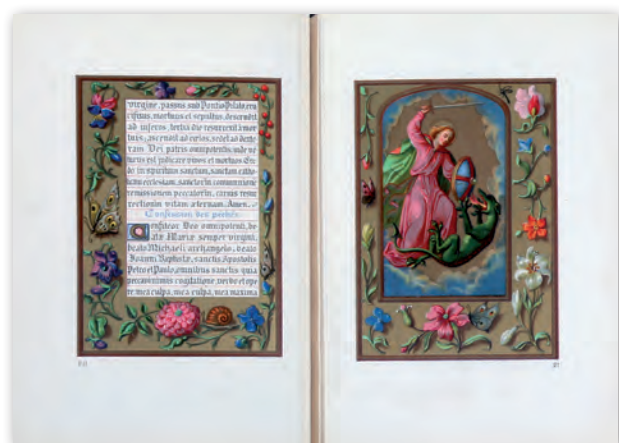 virgine, passus sub Pontio Pilato, cru
cifixus, mortuus et sepultus, descendit
ad inferos, tertia die resurrexit a mor
tuis, ascendit ad cœlos, sedet ad dexte
ram Dei patris omnipotentis, inde ve
turus est judicare vivos et mortuos Cre
do in spiritum sanctum, sanctam catho
ecclesiam, sanctorum communionem
remissionem peccatorum, carnis resur
rectionem vitam æternam. Amen.
Confession des péchés.
Confiteor Deo omnipotenti, be
atæ Mariæ semper virgini,
beato Michaeli archangelo, beato
Joanni Baptistæ, sanctis Apostolis
Petro et Paulo, omnibus sanctis quia
peccavi nimis cogitatione, verbo et ope
re mea culpa, mea culpa, mea maxima